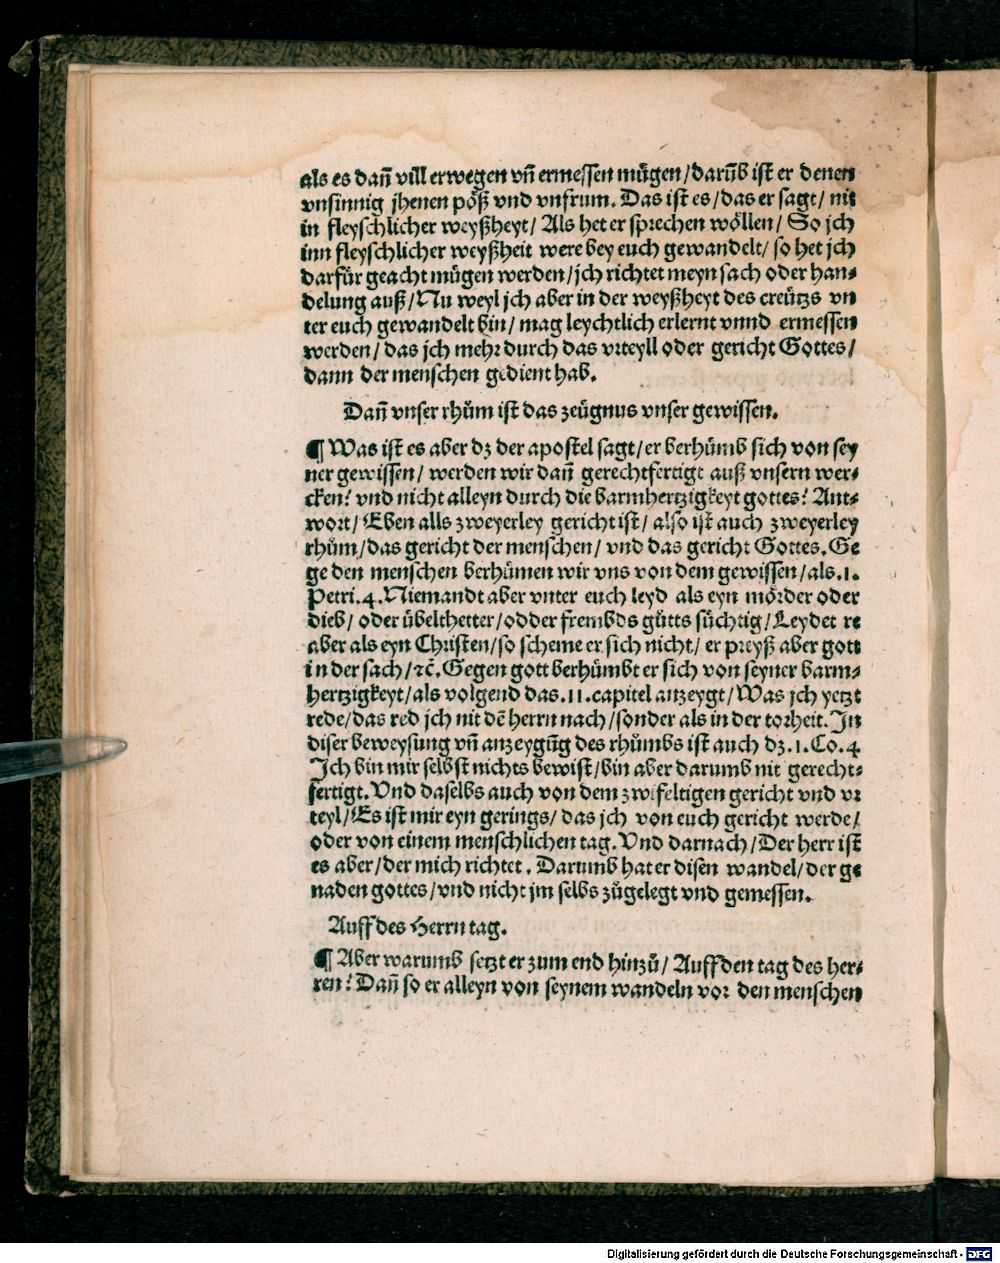 als es dañ vill erwegen vñ ermessen mügen/darũb ist er denen
vnsinnig jhenen pöß vnd vnfrum. Das ist es/das er sagt/ nit
in fleyschlicher weyßheyt/ Als het er sprechen wöllen/ So jch
inn fleyschlicher weyßheit were bey euch gewandelt/ so het jch
darfür geacht mügen werden/jch richtet meyn sach oder han⸗
delung auß/Nu weyl jch aber in der weyßheyt des creützs vn
ter euch gewandelt bin/ mag leychtlich erlernt vnnd ermessen
werden/ das jch mehr durch das vrteyll oder gericht Gottes/
dann der menschen gedient hab.
Dañ vnser rhům ist das zeügnus vnser gewissen.
¶ Was ist es aber dz der apostel sagt/er berhümb sich von sey
ner gewissen/ werden wir dañ gerechtfertigt auß vnsern wer⸗
cken? vnd nicht alleyn durch die barmhertzigkeyt gottes? Ant⸗
wort/ Eben alls zweyerley gericht ist/ also ist auch zweyerley
rhům/das gericht der menschen/ vnd das gericht Gottes. Ge
ge den menschen berhümen wir vns von dem gewissen/als.1.
Petri.4. Niemandt aber vnter euch leyd als eyn mörder oder
dieb/ oder übelthetter/odder frembds gůtts süchtig/Leydet re
aber als eyn Christen/so scheme er sich nicht/ er preyß aber gott
in der sach/ ⁊c̃. Gegen gott berhümbt er sich von seyner barm⸗
hertzigkeyt/als volgend das.11.capitel anzeygt/Was jch yetzt
rede/das red jch nit dẽ herrn nach/sonder als in der torheit. In
diser beweysung vñ anzeygũg des rhůmbs ist auch dz.1.Co.4
Ich bin mir selbst nichts bewist/bin aber darumb nit gerecht⸗
fertigt. Vnd daselbs auch von dem zwifeltigen gericht vnd vr
teyl/Es ist mir eyn gerings/ das jch von euch gericht werde/
oder von einem menschlichen tag. Vnd darnach/Der herr ist
es aber/der mich richtet. Darumb hat er disen wandel/der ge
naden gottes/vnd nicht jm selbs zůgelegt vnd gemessen.
Auff des Herrn tag.
¶ Aber warumb setzt er zum end hinzů/ Auff den tag des her⸗
ren? Dañ so er alleyn von seynem wandeln vor den menschen
Digitalisierung gefördert durch die Deutsche Forschungsgemeinschaft - DFG